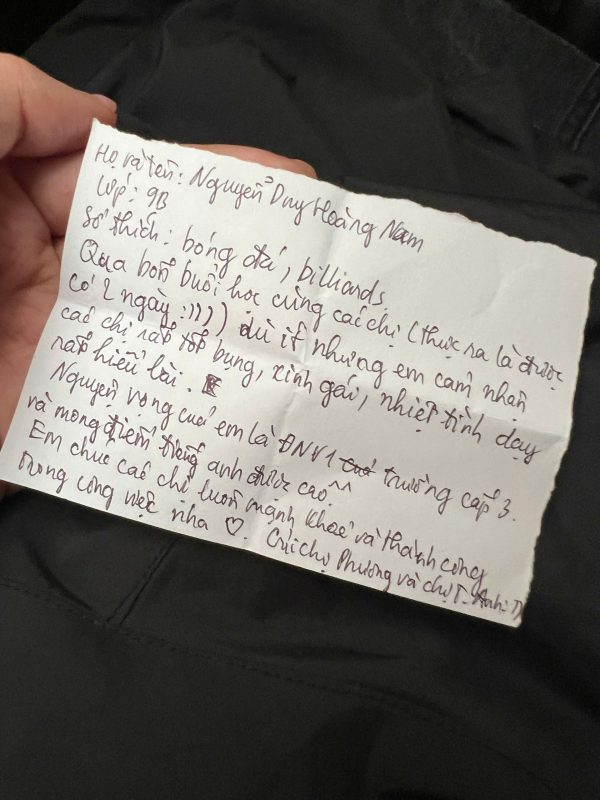 Họ và tên: Nguyễn Duy Hoàng Nam
Lớp: 9B
Sở thích: bóng đá, billiards
Qua bốn buổi học cùng các chị (thực ra là được
có 2 ngày :)))) dù ít nhưng em cảm nhận
các chị rất tốt bụng, xinh gái, nhiệt tình dạy
rất hiểu bài.
Nguyện vọng của em là ĐNV1 trường cấp 3.
và mong điểm tiếng anh được cao ^^
Em chúc các chị luôn mạnh khoẻ và thành công
trong công việc nha ♡. Cúi chị Phương và chị T. Anh :))